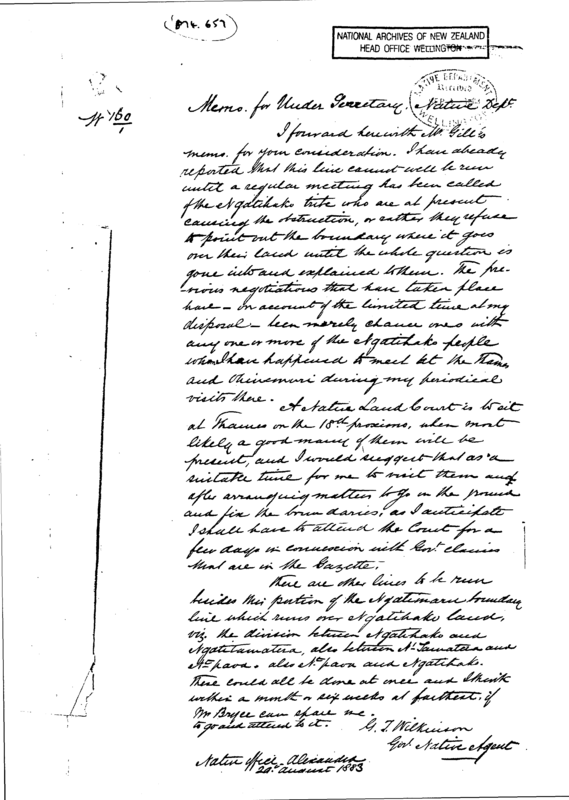 NATIONAL ARCHIVES OF NEW ZEALAND
HEAD OFFICE WELLINGTON
NATIVE DEPARTMENT
WELLINGTON
Memo. for Under Secretary, Native Dept.
I forward herewith Mr Gill's
memo. for your consideration. I have already
reported that this line cannot well be run
until a regular meeting has been called
of the Ngatihako tribe who are at present
causing the obstruction, or rather they refuse
to point out the boundary where it goes
over their land until the whole question is
gone into and explained to them. The pre-
vious negotiations that have taken place
have – on account of the limited time at my
disposal – been merely chance ones with
any one or more of the Ngatihako people
whom I have happened to meet at the Thames
and Ohinemuri during my periodical
visits there.
A Native Land Court is to sit
at Thames on the 18th proximo, when most
likely a good many of them will be
present, and I would suggest that as a
suitable time for me to visit them and
after arranging matters to go on the ground
and fix the boundaries, as I anticipate
I shall have to attend the Court for a
few days in connexion with Govt claims
that are in the Gazette.
There are other lines to be run
besides this portion of the Ngatimaru boundary
line which runs over Ngatihako land,
viz. the division between Ngatihako and
Ngatitamatera, also between N. Tamatera and
N. paoa. also N. paoa and Ngatihako.
These could all be done at once and I think
within a month or six weeks at farthest, if
Mr Bryce can spare me
to go and attend to it.
G. T. Wilkinson
Govt Native Agent
Native Office – Alexandra
29th August 1883